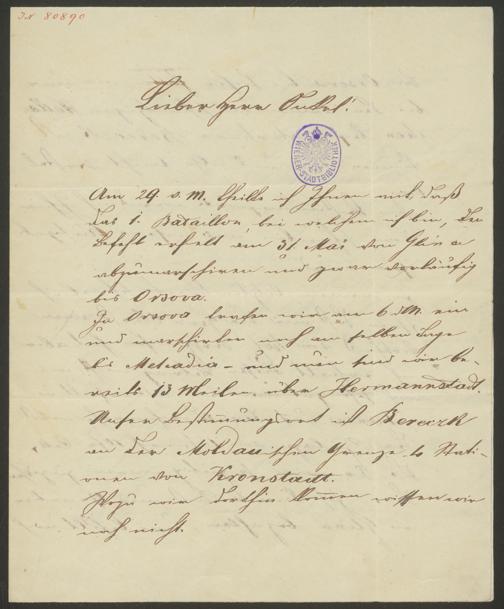 IN 80890
Lieber Herr Onkel!
WIENER STADTBIBLIOTHEK
Am 29 v. M. theilte ich Ihnen mit, daß
das 1. Bataillon, bei welchem ich bin, den
Befehl erhielt am 31 Mai von Glina
abzumarschiren und zwar vorläufig
bis Orsova.
In Orsova trafen wir am 6 d M. ein
und marschirten noch am selben Tage
bis Mehadia – und nun sind wir be-
reits 13 Meilen über Hermannstadt.
Unser Bestimmungsort ist Bereczk
an der Moldauischen Grenze 4 Stati-
onen von Kronstadt.
Wozu wir dorthin kommen wissen wir
noch nicht.